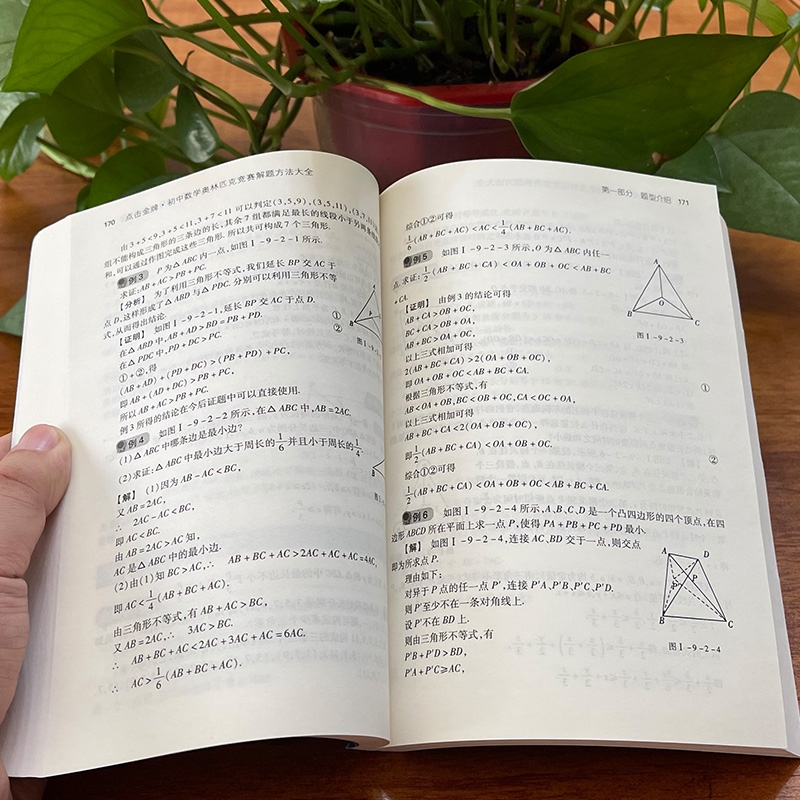 170 点击金牌·初中数学奥林匹克竞赛解题方法大全
由3+5<9,3+5<11,3+7<11可以判定(3,5,9),(3,5,11),(3,7,11)
组不能构成三角形的三边的长,其余7组都满足最长的线段小于另两条线段
和,可以通过作图完成这些三角形.所以共可构成7个三角形.
例3 P为△ABC内一点,如图Ⅰ-9-2-1所示.
求证:AB+AC>PB+PC.
【分析】 为了利用三角形不等式,我们延长BP交AC于
点D,这样形成了△ABD与△PDC.分别可以利用三角形不等
式,从而得出结论.
【证明】 如图Ⅰ-9-2-1,延长BP交AC于点D.
在△ABD中,AB+AD>BD=PB+PD. ①
在△PDC中,PD+DC>PC. ②
①+②,得
(AB+AD)+(PD+DC)>(PB+PD)+PC,
即AB+(AD+DC)>PB+PC,
所以AB+AC>PB+PC.
例3所得的结论在今后证题中可以直接使用.
例4 如图Ⅰ-9-2-2所示,在△ABC中,AB=2AC.
(1)△ABC中哪条边是最小边?
(2)求证:△ABC中最小边大于周长的1/6并且小于周长的1/4.
【解】 (1)因为AB-AC<BC,
又AB=2AC,
∴ 2AC-AC<BC,
即AC<BC.
由AB=2AC>AC知,
AC是△ABC中的最小边.
(2)由(1)知BC>AC,∴ AB+BC+AC>2AC+AC+AC=4AC,
即AC<1/4(AB+BC+AC).
由三角形不等式,有AB+AC>BC,
又AB=2AC,∴ 3AC>BC.
∴ AB+BC+AC<2AC+3AC+AC=6AC.
∴ AC>1/6(AB+BC+AC).
A
P
B
图Ⅰ-9-
第一部分 题型介绍 171
综合①②可得
1/6(AB+BC+AC)<AC<1/4(AB+BC+AC).
例5 如图Ⅰ-9-2-3所示,O为△ABC内任一
点.求证:1/2(AB+BC+CA)<OA+OB+OC<AB+BC
+CA.
【证明】 由例3的结论可得
AB+CA>OB+OC,
BC+CA>OB+OA,
AB+BC>OA+OC,
以上三式相加可得
2(AB+BC+CA)>2(OA+OB+OC),
即OA+OB+OC<AB+BC+CA. ①
根据三角形不等式,有
AB<OA+OB,BC<OB+OC,CA<OC+OA,
以上三式相加可得
AB+BC+CA<2(OA+OB+OC),
即1/2(AB+BC+CA)<OA+OB+OC. ②
综合①②可得
1/2(AB+BC+CA)<OA+OB+OC<AB+BC+CA.
A
O
B C
图Ⅰ-9-2-3
例6 如图Ⅰ-9-2-4所示,A,B,C,D是一个凸四边形的四个顶点,在四
边形ABCD所在平面上求一点P,使得PA+PB+PC+PD最小.
【解】 如图Ⅰ-9-2-4,连接AC,BD交于一点,则交点
即为所求点P.
理由如下:
对异于P点的任一点P',连接P'A,P'B,P'C,P'D.
则P'至少不在一条对角线上.
设P'不在BD上.
则由三角形不等式,有
P'B+P'D>BD,
P'A+P'C≥AC,
A D
P' P
B C
图Ⅰ-9-2-4